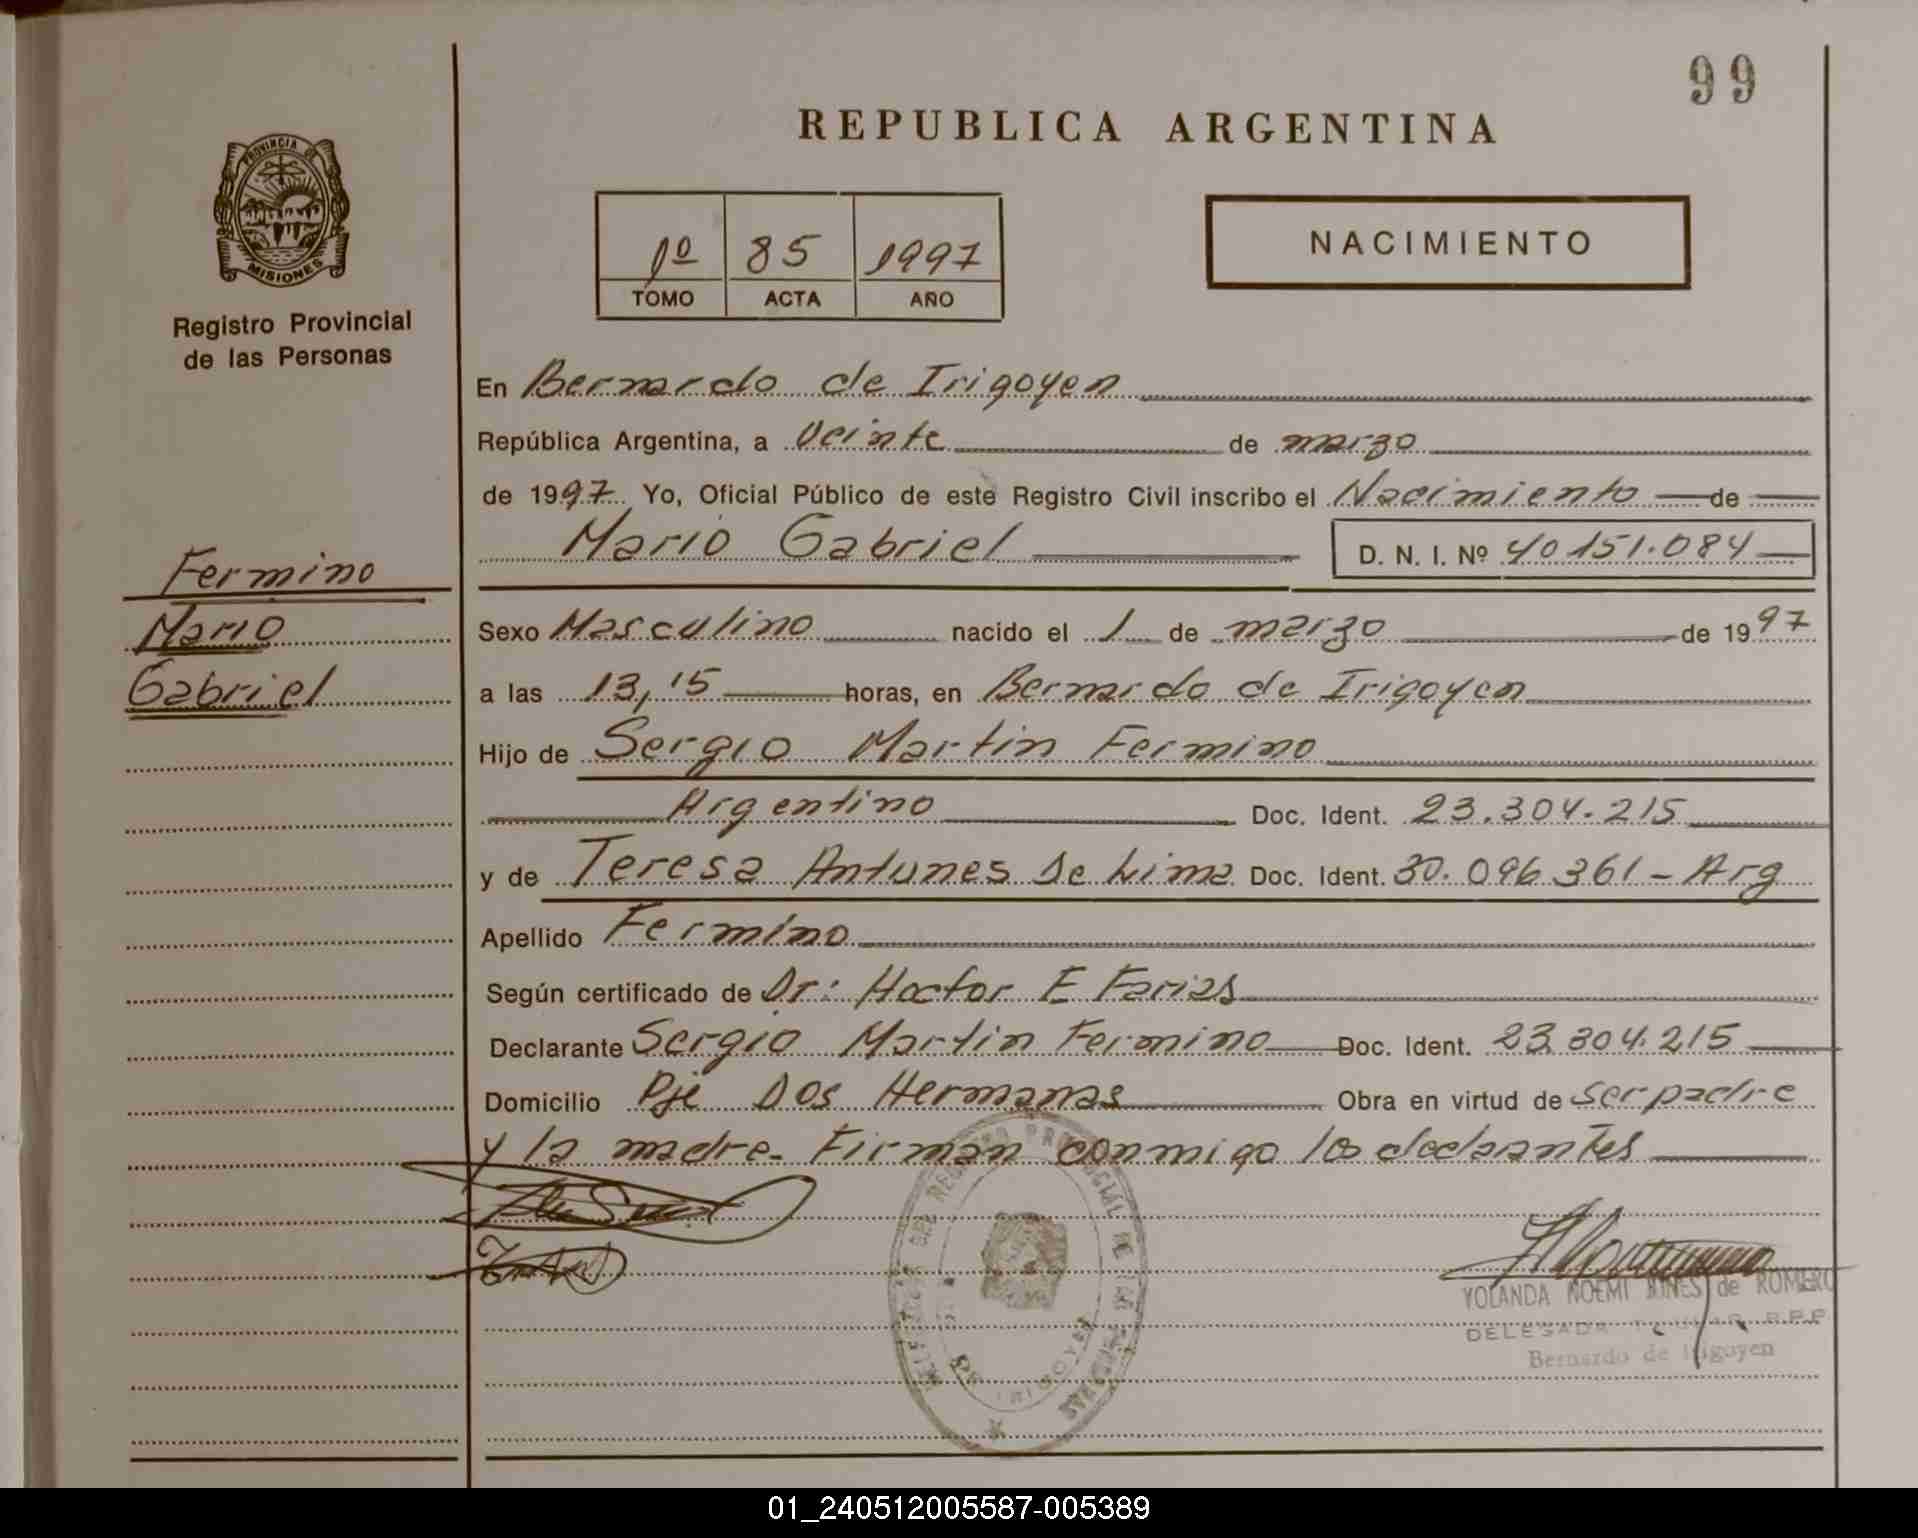 99
REPUBLICA ARGENTINA
PROVINCIA DE
MISIONES
Registro Provincial
de las Personas
1º 85 1997
TOMO ACTA AÑO
NACIMIENTO
En Bernardo de Irigoyen
República Argentina, a Veinte de marzo
de 1997 Yo, Oficial Público de este Registro Civil inscribo el Nacimiento de
Mario Gabriel D. N. I. Nº 40151.084
Fermino
Mario
Gabriel
Sexo Masculino nacido el 1 de marzo de 1997
a las 13,15 horas, en Bernardo de Irigoyen
Hijo de Sergio Martin Fermino
Argentino Doc. Ident. 23.304.215
y de Teresa Antunes De Lima Doc. Ident. 30.096.361 - Arg
Apellido Fermino
Según certificado de Dr: Hector E Farias
Declarante Sergio Martin Fermino Doc. Ident. 23.304.215
Domicilio Pje Dos Hermanas Obra en virtud de ser padre
y la madre. Firman conmigo los declarantes
YOLANDA NOEMI de ROMERO
DELEGADA TITULAR R.P.P.
Bernardo de Irigoyen
01_240512005587-005389